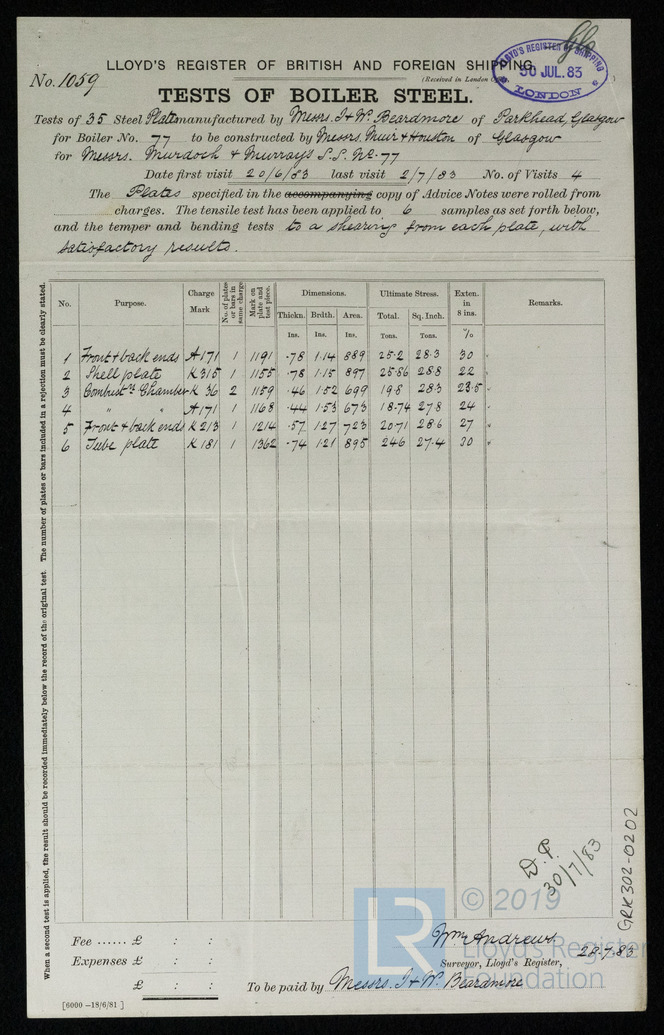 Glo
LLOYD'S REGISTER OF BRITISH AND FOREIGN SHIPPING.
LLOYD'S REGISTER OF SHIPPING
30 JUL. 83
LONDON
No. 1059
(Received in London
TESTS OF BOILER STEEL.
Tests of 35 Steel Plates manufactured by Messrs. I & W. Beardmore of Parkhead, Glasgow
for Boiler No. 77 to be constructed by Messrs. Muir & Houston of Glasgow
for Messrs. Murdoch & Murray's S.S. No. 77
Date first visit 20/6/83 last visit 2/7/83 No. of Visits 4
The Plates specified in the accompanying copy of Advice Notes were rolled from
charges. The tensile test has been applied to 6 samples as set forth below,
and the temper and bending tests to a shearing from each plate, with
satisfactory results.
No. Purpose. Charge Mark No. of plates or bars in same charge Mark on plate and test piece. Dimensions. Ultimate Stress. Exten. in 8 ins. Remarks.
Thickn. Brdth. Area. Total. Sq. Inch.
Ins. Ins. Ins. Tons. Tons. %
1 Front & back ends A 171 1 1191 .78 1.14 .889 25.2 28.3 30
2 Shell plate K 315 1 1155 .78 1.15 .897 25.86 28.8 22
3 Combust.n Chamber K 36 2 1159 .46 1.52 .699 19.8 28.3 23.5
4 " " A 171 1 1168 .44 1.53 .673 18.74 27.8 24
5 Front & back ends K 213 1 1214 .57 1.27 .723 20.71 28.6 27
6 Tube plate K 181 1 1362 .74 1.21 .895 24.6 27.4 30
When a second test is applied, the result should be recorded immediately below the record of the original test. The number of plates or bars included in a rejection must be clearly stated.
D.P.
30/7/83
GRK302-0202
Fee ...... £ : :
Expenses £ : :
£ : :
Wm Andrews.
Surveyor, Lloyd's Register, 28.7.83
To be paid by Messrs. I & W. Beardmore
[6000 –18/6/81]
LR
© 2019
Lloyd's Register
Foundation